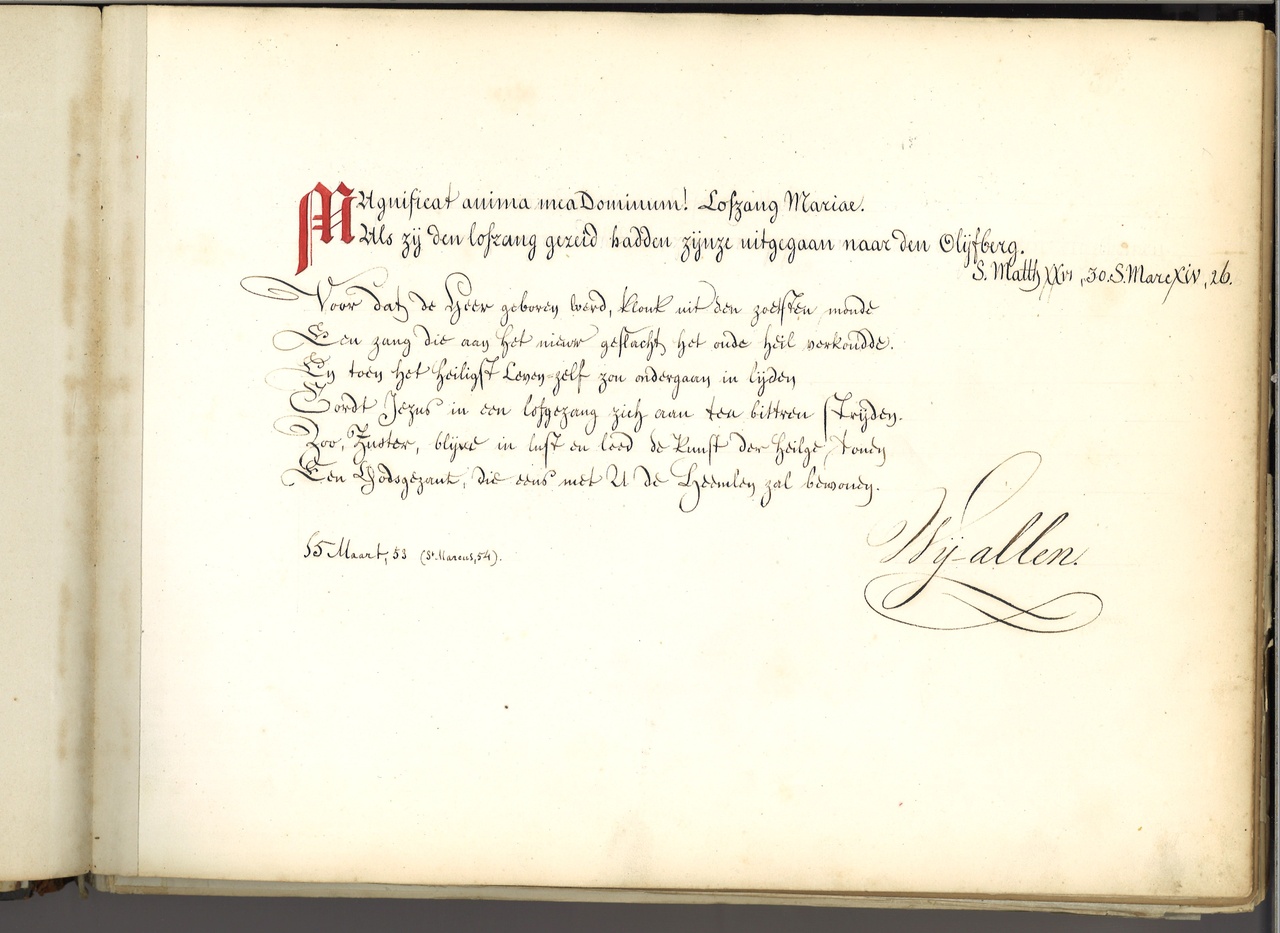 MAgnificat anima mea Dominum! Lofzang Mariae.
Als zij den lofzang gezeid hadden zijnze uitgegaan naar den Olijfberg.
S. Matth XXVI, 30. S. Marc XIV, 26.
Voor dat de Heer geboren werd, klonk uit den zoetsten monde
Een zang die aan het nieuw geslacht het oude heil verkondde.
En toen het heiligst Leven-zelf zou ondergaan in lijden
Gordt Jezus in een lofgezang zich aan ten bittren strijden.
Zoo, Zuster, blijve in lust en leed de kunst der heilge tonen
Een Godsgezant, die eens met U de Heemlen zal bewonen.
Wij-allen.
15 Maart, 53 (St. Marcus, 54).